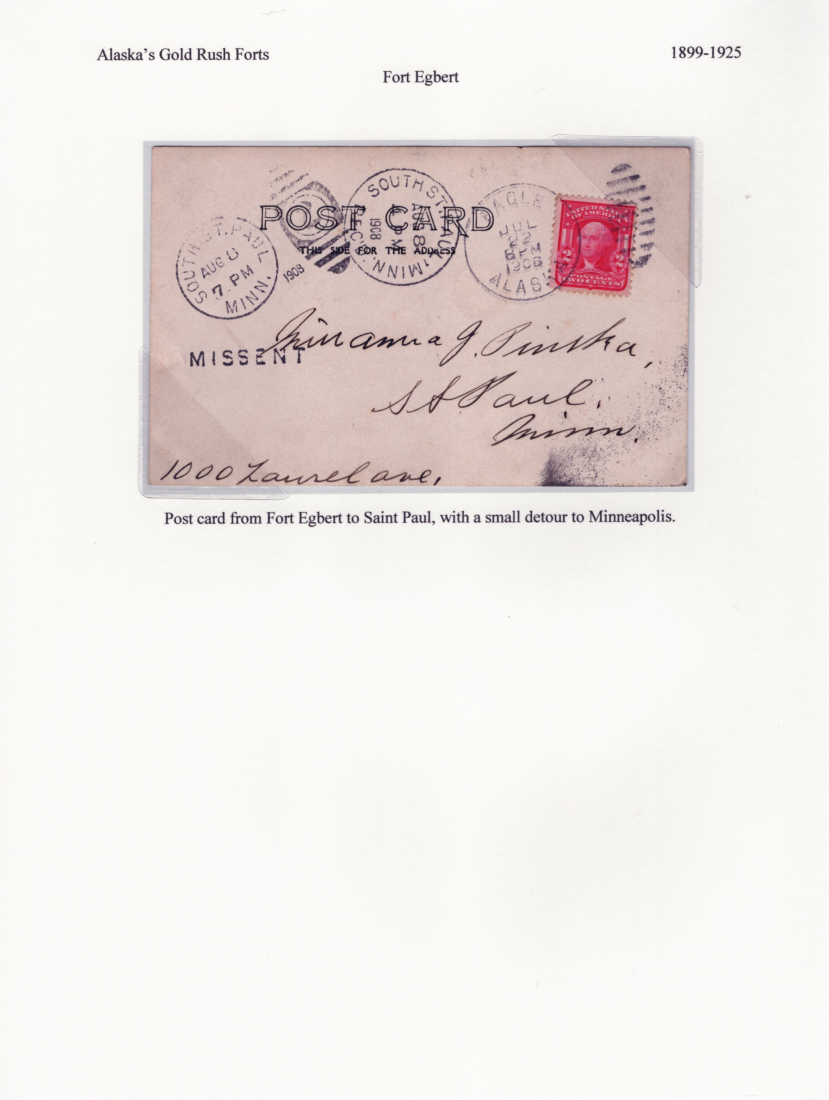 Alaska's Gold Rush Forts 1899-1925
Fort Egbert
SOUTH ST. PAUL MINN.
AUG 8
7 PM
1908
SOUTH ST. PAUL MINN. REC'D.
AUG 8
M
1908
EAGLE ALASKA
JUL
22
6 PM
1908
UNITED STATES OF AMERICA
2 2
POSTAGE
TWO CENTS
POST CARD
THIS SIDE FOR THE ADDRESS
MISSENT
J. Pinska,
St Paul,
Minn.
1000 Laurel ave,
Post card from Fort Egbert to Saint Paul, with a small detour to Minneapolis.